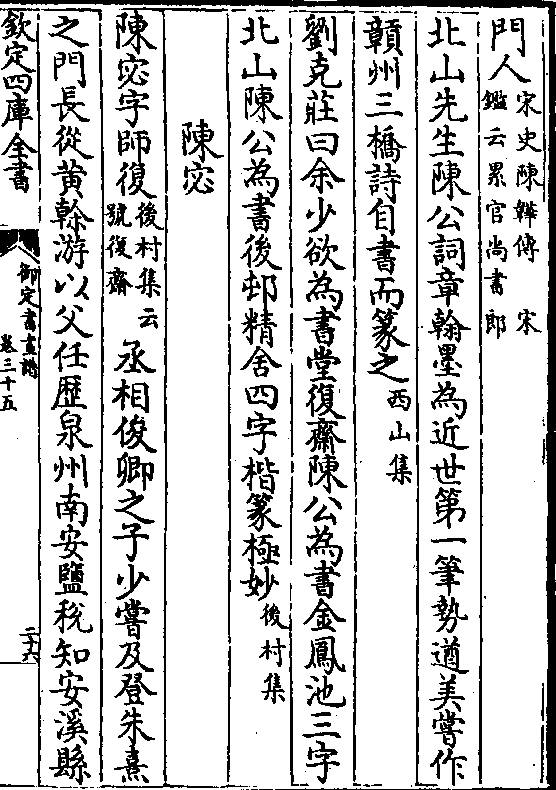 門人宋史陳韡傳 宋
鑑云累官尚書郎
北山先生陳公詞章翰墨為近世第一筆勢遒美嘗作
贛州三橋詩自書而篆之西山集
劉克莊曰余少欲為書堂復齋陳公為書金鳳池三字
北山陳公為書後邨精舍四字楷篆極妙後村集
陳宓
陳宓字師復後村集云
號復齋丞相俊卿之子少嘗及登朱熹
之門長從黄榦游以父任歴泉州南安鹽税知安溪縣
欽定四庫全書
御定書畫譜
卷三十五
二十六